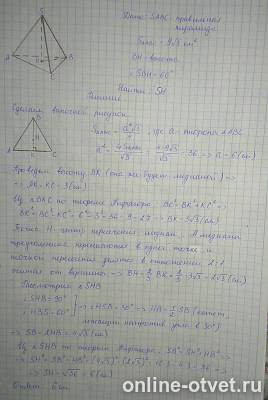 Дано: SABC правильная
пирамида
Sосн = 9√3 см²
BH - высота
∠SBH = 60°
Найти: SH
Решение:
Сделаем выносной рисунок
Sосн = a²√3/4, где a - сторона ΔABC
a² = 4Sосн/√3 = 4·9√3/√3 = 36 => a = 6 (см)
Проведём высоту BK (она же будет медианой) =>
=> AK = KC = 3 (см)
Из ΔBKC по теореме Пифагора: BC² = BK² + KC² =>
BK² = BC² - KC² = 6² - 3² = 36 - 9 = 27 => BK = 3√3 (см)
Точка H - центр пересечения медиан. А медианы
треугольника пересекаются в одной точке и
точкой пересечения делятся в отношении 2:1
считая от вершины => BH = 2/3 BK = 2/3 · 3√3 = 2√3 (см)
Рассмотрим ΔSHB
∠SHB = 90°
∠HBS = 60° => ∠HSB = 30° => HB = 1/2 SB (катет
лежащий напротив угла в 30°)
=> SB = 2HB = 4√3 (см)
Из ΔSHB по теореме Пифагора: SB² = SH² + HB² =>
=> SH² = SB² - HB² = (4√3)² - (2√3)²
=> SH = √36 = 6 (см)
Ответ: 6 см
online-otvet.ru